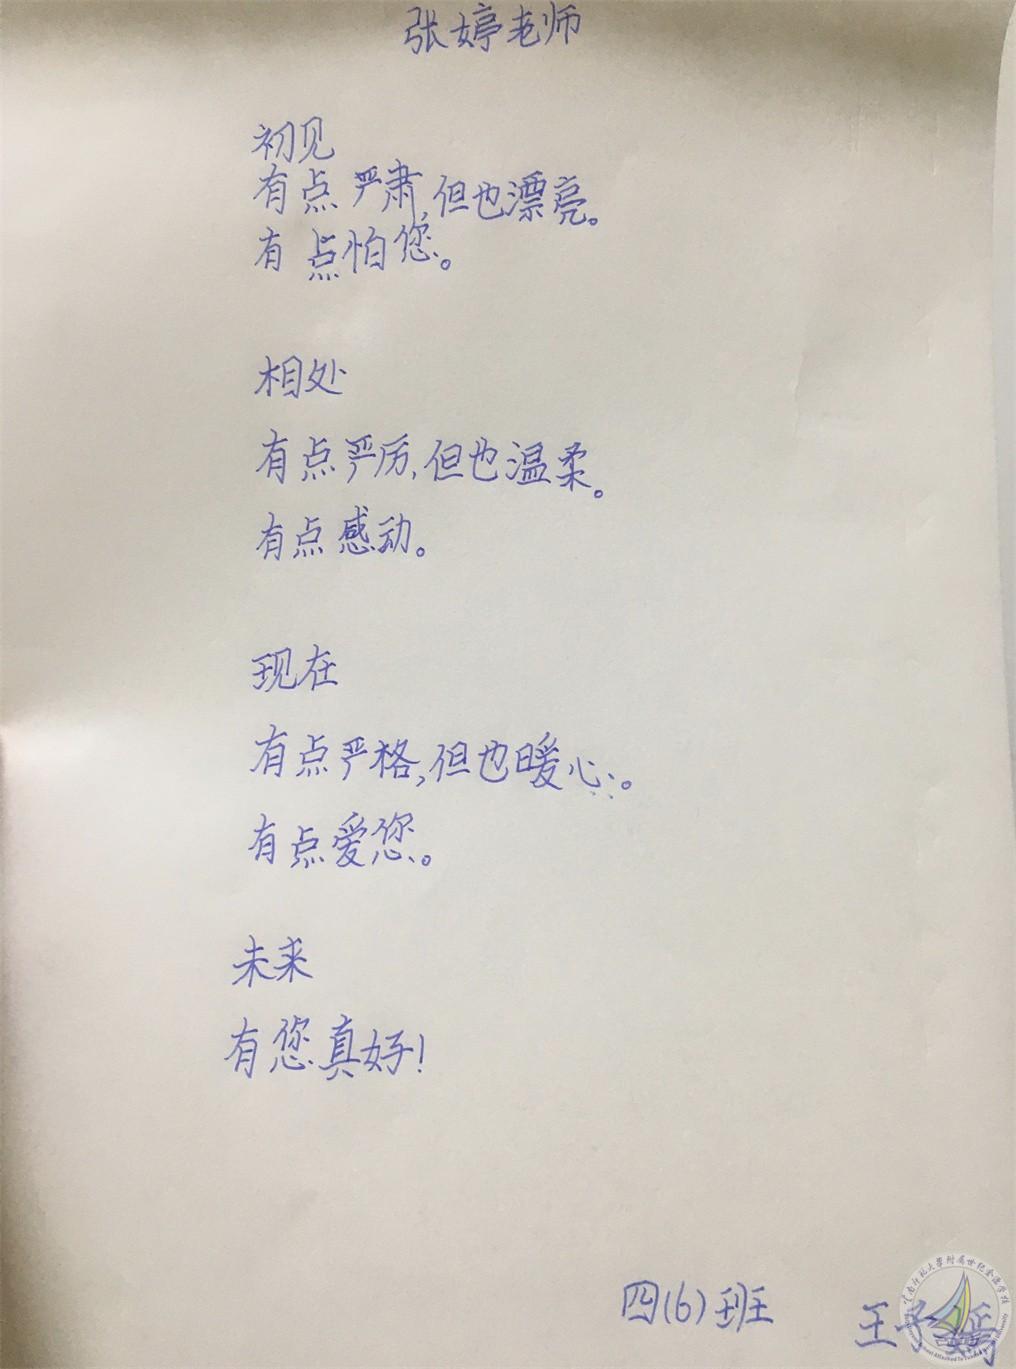 张婷老师
初见
有点严肃,但也漂亮。
有点怕您。
相处
有点严厉,但也温柔。
有点感动。
现在
有点严格,但也暖心。
有点爱您。
未来
有您真好!
四(6)班
王子嫣